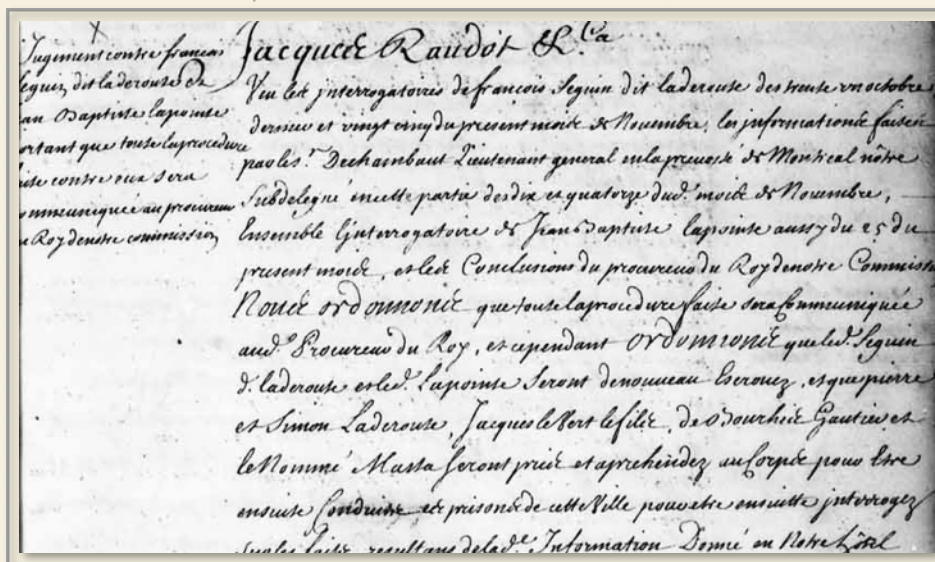 Jugement contre francois
Seguin dit laderoute Et
Jean Baptiste lapointe
portant que toute la procedure
faite contre eux sera
communiquée au procureur
du Roy de nostre commission
Jacques Raudot &.ca
Veu les jnterrogatoires de francois Seguin dit laderoute des trente un octobre
dernier et vingt cinq du present mois de Novembre, les jnformations faites
par le s.r Dechambaut Lieutenant general en la prevosté de Montreal nôtre
Subdelegué en cette partie des dix et quatorze dud. mois de Novembre,
Ensemble L'jnterrogatoire de Jean Baptiste lapointe aussy du 25 du
present mois, et les Conclusions du procureur du Roy de nostre Commission
Nous ordonnons que toute la procedure faite sera Communiquée
aud. Procureur du Roy, et cependant ordonnons que led. Seguin
d. laderoute et led. Lapointe Seront denouveau Escrouez, et que pierre
et Simon Laderoute, Jacques le Vert le fils, de Bourhis Gautier et
le Nommé Massa Seront pris et aprehendez au Corps pour Estre
ensuite Conduits es prisons de cette Ville pour etre ensuitte jnterrogez
Sur les faits resultans de lad.e Jnformation Donné en Notre hôtel